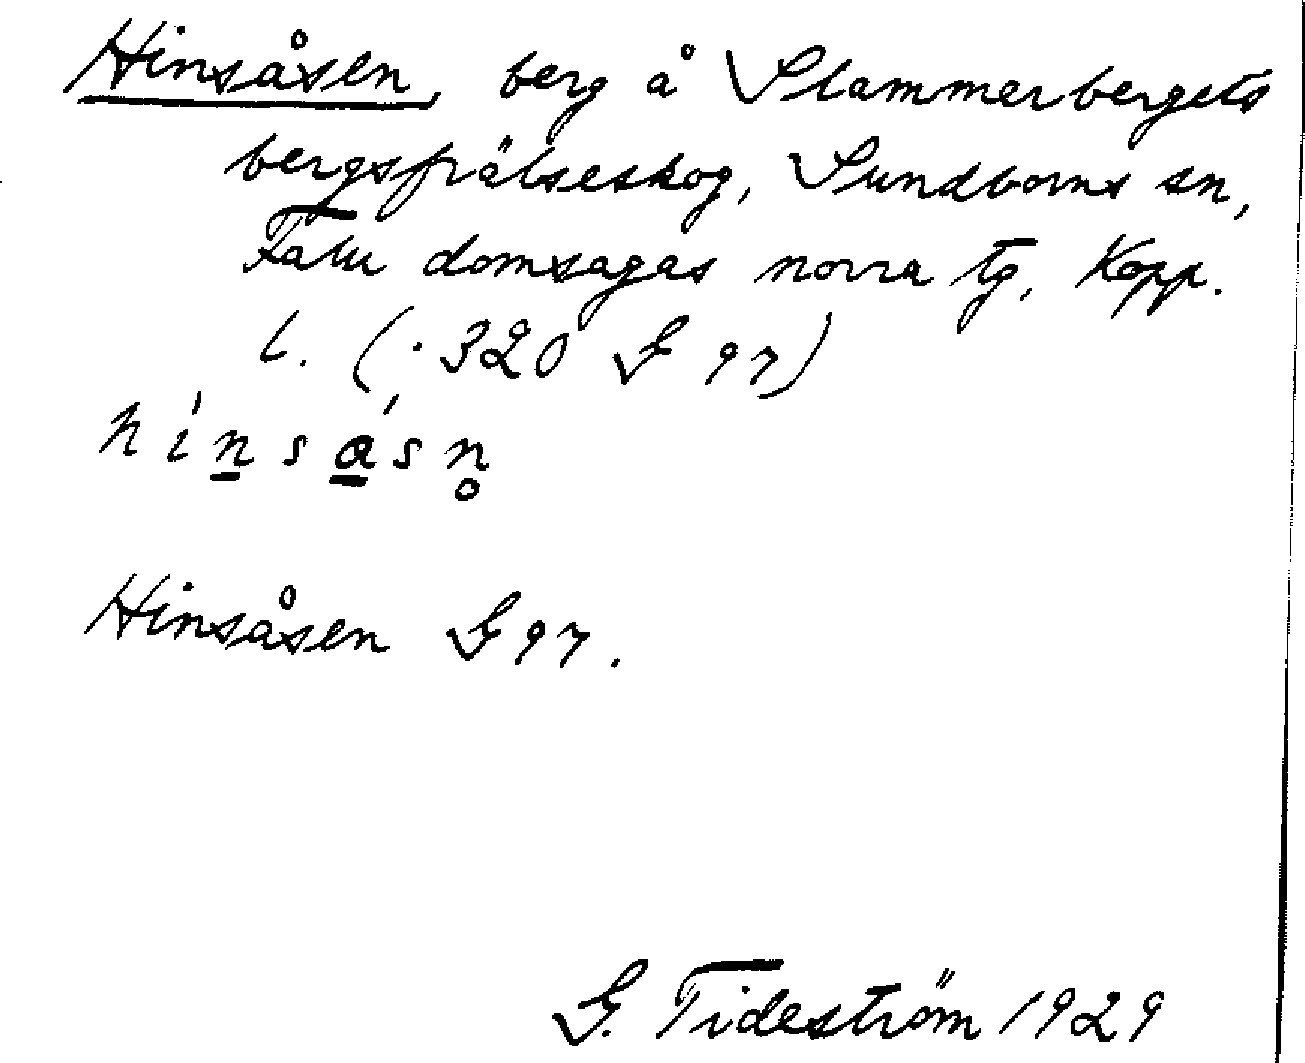 Hinsåsen, berg å Slammerbergets
bergsfrälseskog, Sundborns sn,
Falu domsagas norra tg, Kopp.
l. (·320 G 97)
hi´n̲sa̲´sn̥
Hinsåsen G 97.
G. Tideström 1929